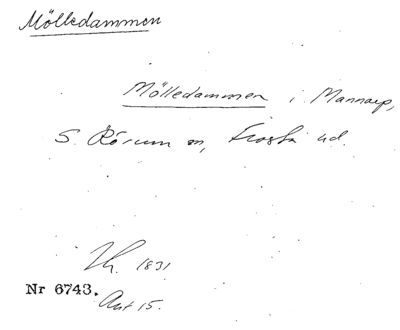 Mölledammen
Mölledammen i Mannarp,
S. Rörum sn, Frosta hd.
1831
Nr 6743.
Akt 15.